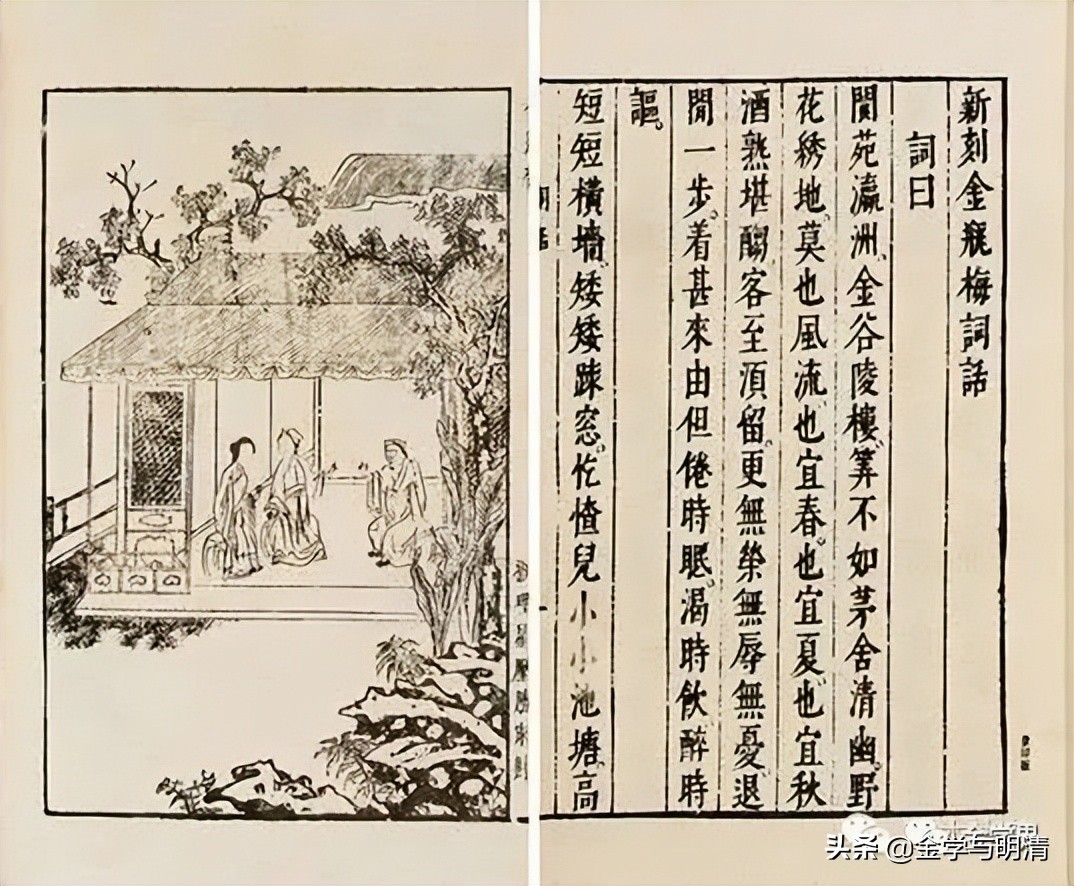 新刻金瓶梅詞話
詞曰
閬苑瀛洲、金谷陵樓、筭不如茅舍清幽。野
花綉地、莫也風流、也宜春、也宜夏、也宜秋
酒熟堪客至湏留、更無榮無辱無憂、退
閒一步、着甚來由、但倦時眠、渴時飲、醉時
謳。
短短橫墻、矮矮踈窓、忔㥮兒小小池塘、高
头条 @金学与明清